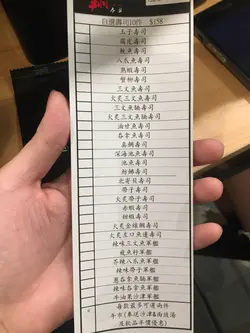 自選壽司10件 $158
玉子壽司
腐皮壽司
鮭魚壽司
八爪魚壽司
熟蝦壽司
蟹柳壽司
三文魚壽司
火炙三文魚壽司
三文魚腩壽司
火炙三文魚腩壽司
油甘魚壽司
吞拿魚壽司
真鯛壽司
深海池魚壽司
池魚壽司
劍魚壽司
北寄貝壽司
帶子壽司
火炙帶子壽司
赤蝦壽司
甜蝦壽司
火炙金線鯛壽司
火炙左口魚邊壽司
辣味三文魚軍艦
飛魚籽軍艦
芥辣八爪魚軍艦
辣味帶子軍艦
蔥吞拿魚軍艦
辣味吞拿魚軍艦
牛油果沙津軍艦
每款最多可選兩件
午市(奉送沙津&麵豉湯
及飲品半價優惠)